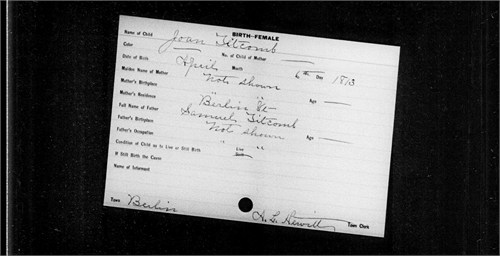 BIRTH-FEMALE
Name of Child Joan Titcomb
Color No. of Child of Mother
Date of Birth April Month Day 1813
Maiden Name of Mother Not shown
Mother's Birthplace Age
Mother's Residence "Berlin" Vt
Full Name of Father Samuel Titcomb
Father's Birthplace Not shown Age
Father's Occupation " "
Condition of Child as to Live or Still Birth Live
If Still Birth the Cause
Name of Informant
Town Berlin Town Clerk